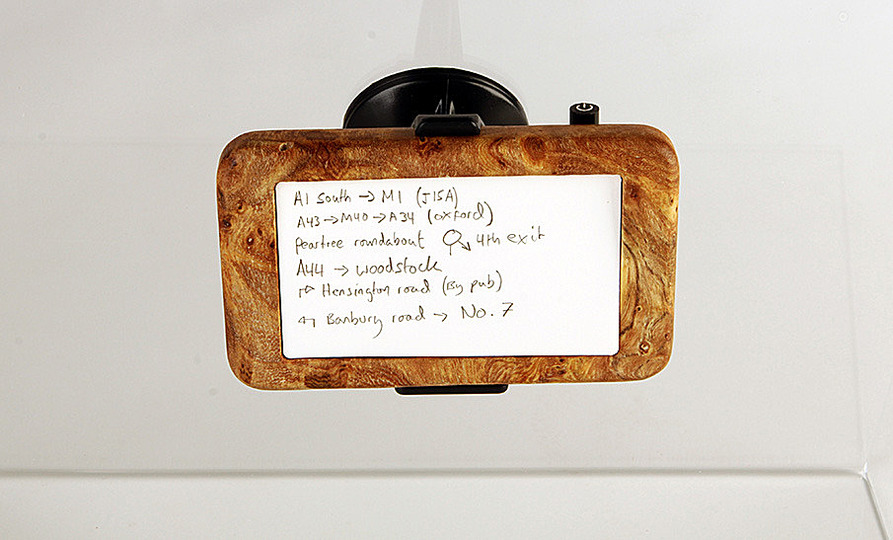 A1 South → M1 (J15A)
A43 → M40 → A34 (oxford)
Peartree roundabout 4th exit
A44 → woodstock
↱ Hensington road (By pub)
↰ Banbury road → No. 7